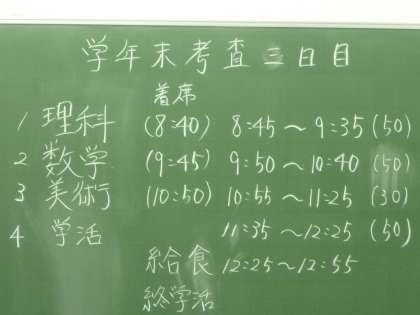 学年末考査三日目
着席
1 理科 (8:40) 8:45～9:35 (50)
2 数学 (9:45) 9:50～10:40 (50)
3 美術 (10:50) 10:55～11:25 (30)
4 学活 11:35～12:25 (50)
給食 12:25～12:55
終学活